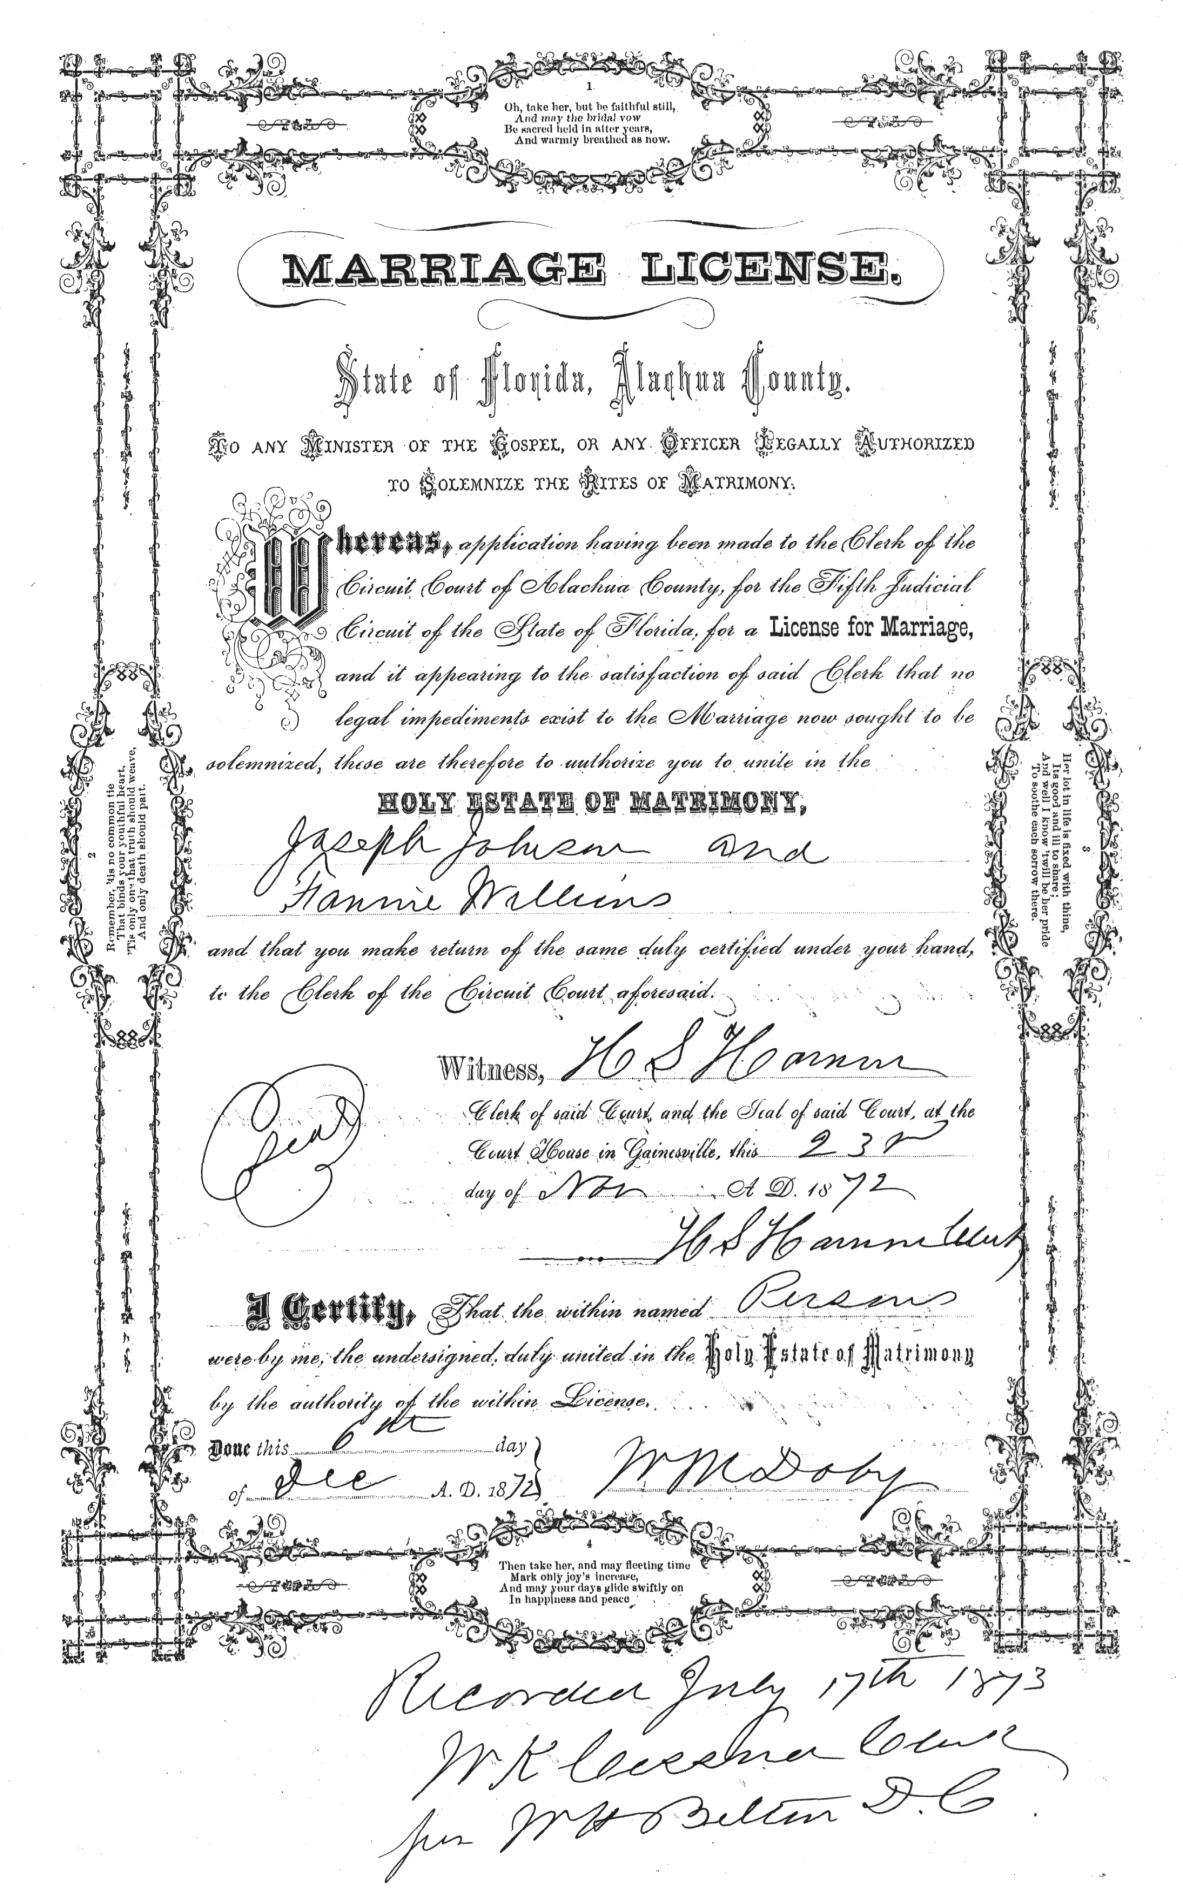 1
Oh, take her, but be faithful still,
And may the bridal vow
Be sacred held in after years,
And warmly breathed as now.
MARRIAGE LICENSE.
State of Florida, Alachua County.
TO ANY MINISTER OF THE GOSPEL, OR ANY OFFICER LEGALLY AUTHORIZED
TO SOLEMNIZE THE RITES OF MATRIMONY:
Whereas, application having been made to the Clerk of the
Circuit Court of Alachua County, for the Fifth Judicial
Circuit of the State of Florida, for a License for Marriage,
and it appearing to the satisfaction of said Clerk that no
legal impediments exist to the Marriage now sought to be
solemnized, these are therefore to authorize you to unite in the
HOLY ESTATE OF MATRIMONY,
Joseph Johnson and
Fannie Williams
and that you make return of the same duly certified under your hand,
to the Clerk of the Circuit Court aforesaid.
2
Remember, 'tis no common tie
That binds your youthful heart,
'Tis only one that truth should weave,
And only death should part.
3
Her lot in life is fixed with thine,
Its good and ill to share;
And well I know 'twill be her pride
To soothe each sorrow there.
Witness, H S Harmon
Clerk of said Court, and the Seal of said Court, at the
Court House in Gainesville, this 23r
day of Nov A. D. 1872
Seal
H S Harmon Clerk
I Certify, That the within named Persons
were by me, the undersigned, duly united in the Holy Estate of Matrimony
by the authority of the within License.
Done this 6th day
of Dec A. D. 1872
W M Doby
4
Then take her, and may fleeting time
Mark only joy's increase,
And may your days glide swiftly on
In happiness and peace
Recorded July 17th 1873
W K Cessna Clerk
per W H Belton D. C.